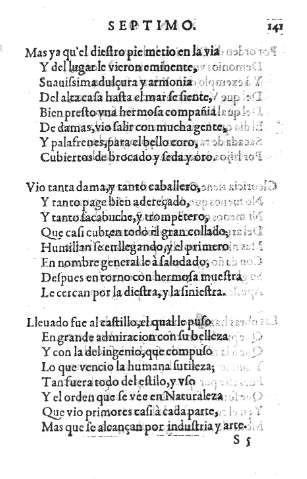 SEPTIMO. 141
Mas ya qu'el diestro pie metio en la via
Y del lugar le vieron eminente,
Suauissima dulçura y armonia
Del alcaçasa hasta el mar se siente,
Bien presto vna hermosa compañia
De damas, vio salir con mucha gente,
Y palafrenes, para el bello coro,
Cubiertos de brocado y seda y oro.
Vio tanta dama, y tanto caballero,
Y tanto page bien adereçado,
Y tanto sacabuche, y trompetero,
Que casi cubren todo il gran collado,
Humillanse en llegando, y el primero
En nombre general le à saludado;
Despues en torno con hermosa muestra
Le cercan por la diestra, y la siniestra.
Lleuado fue al castillo, el qual le puso
En grande admiracion con su belleza
Y con la del ingenio, que compuso
Lo que vencio la humana sutileza;
Tan fuera todo del estilo, y vso
Y el orden que se vee en Naturaleza
Que vio primores casi à cada parte,
Mas que se alcançan por industria y arte.
S 5